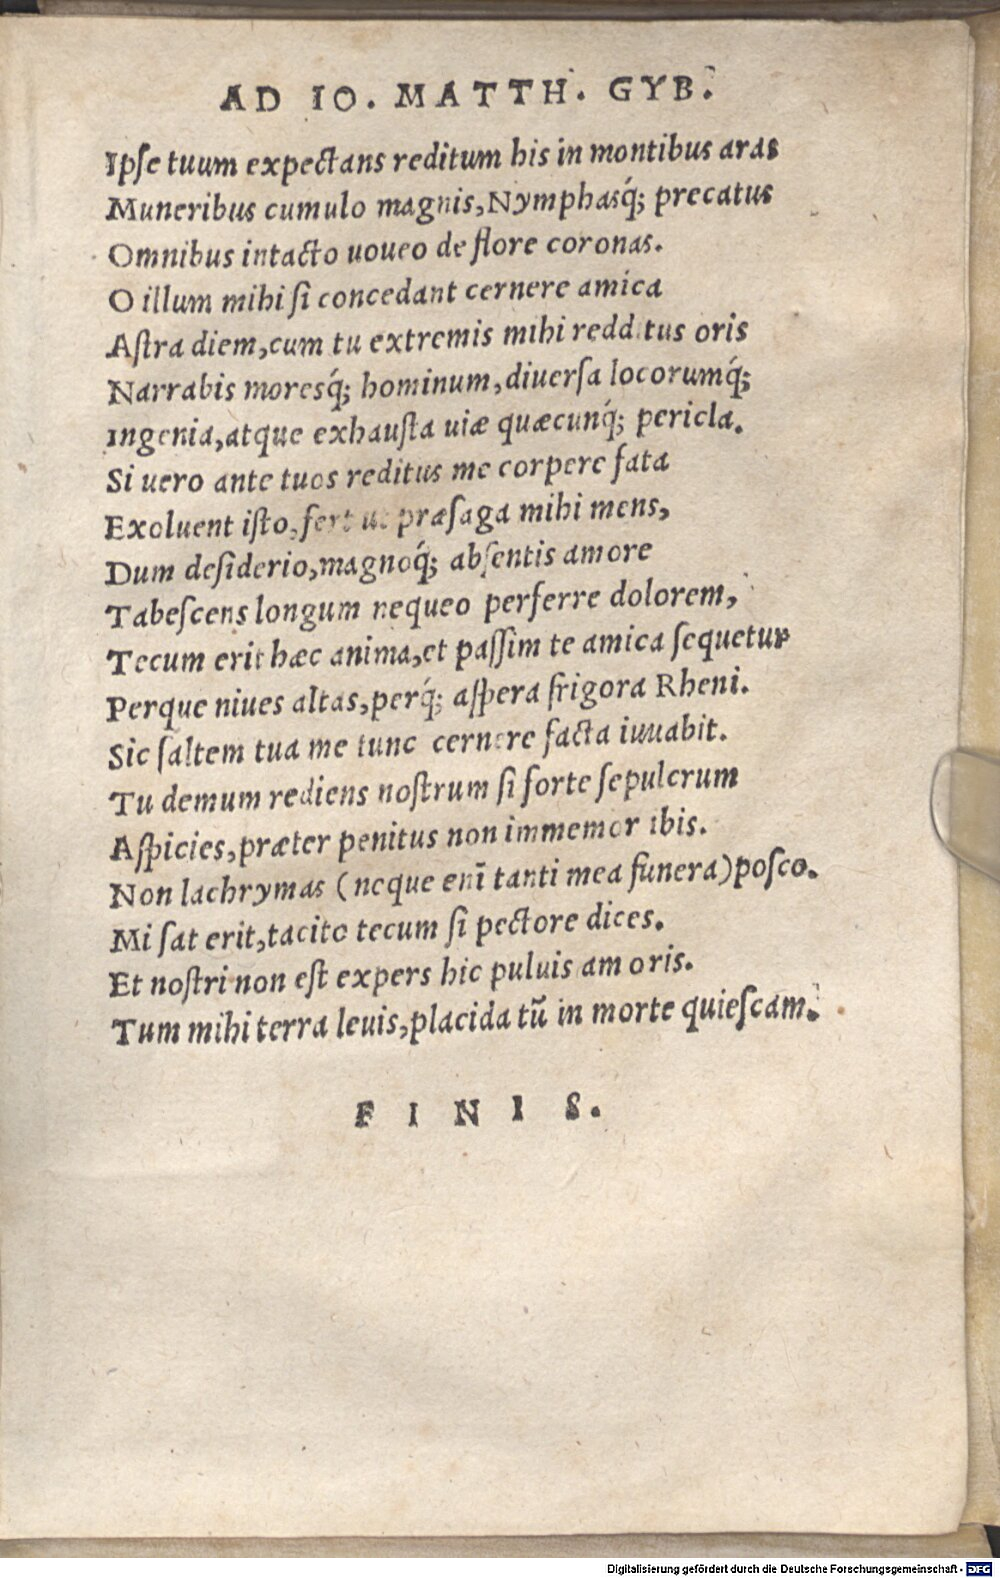 AD IO. MATTH. GYB.
Ipſe tuum expectans reditum his in montibus aras
Muneribus cumulo magnis, Nymphasq́; precatus
Omnibus intacto uoueo de flore coronas.
O illum mihi ſi concedant cernere amica
Aſtra diem, cum tu extremis mihi redditus oris
Narrabis moresq́; hominum, diuerſa locorumq́;
Ingenia, atque exhauſta uiæ quæcunq́; pericla.
Si uero ante tuos reditus me corpere fata
Exoluent iſto, fert ut præſaga mihi mens,
Dum deſiderio, magnoq́; abſentis amore
Tabeſcens longum nequeo perferre dolorem,
Tecum erit hæc anima, et paſſim te amica ſequetur
Perque niues altas, perq́; aſpera frigora Rheni.
Sic ſaltem tua me tunc cernere facta iuuabit.
Tu demum rediens noſtrum ſi forte ſepulcrum
Aſpicies, præter penitus non immemor ibis.
Non lachrymas (neque enī tanti mea funera) poſco.
Mi ſat erit, tacito tecum ſi pectore dices.
Et noſtri non eſt expers hic puluis amoris.
Tum mihi terra leuis, placida tū in morte quieſcam.
FINIS.
Digitalisierung gefördert durch die Deutsche Forschungsgemeinschaft - DFG